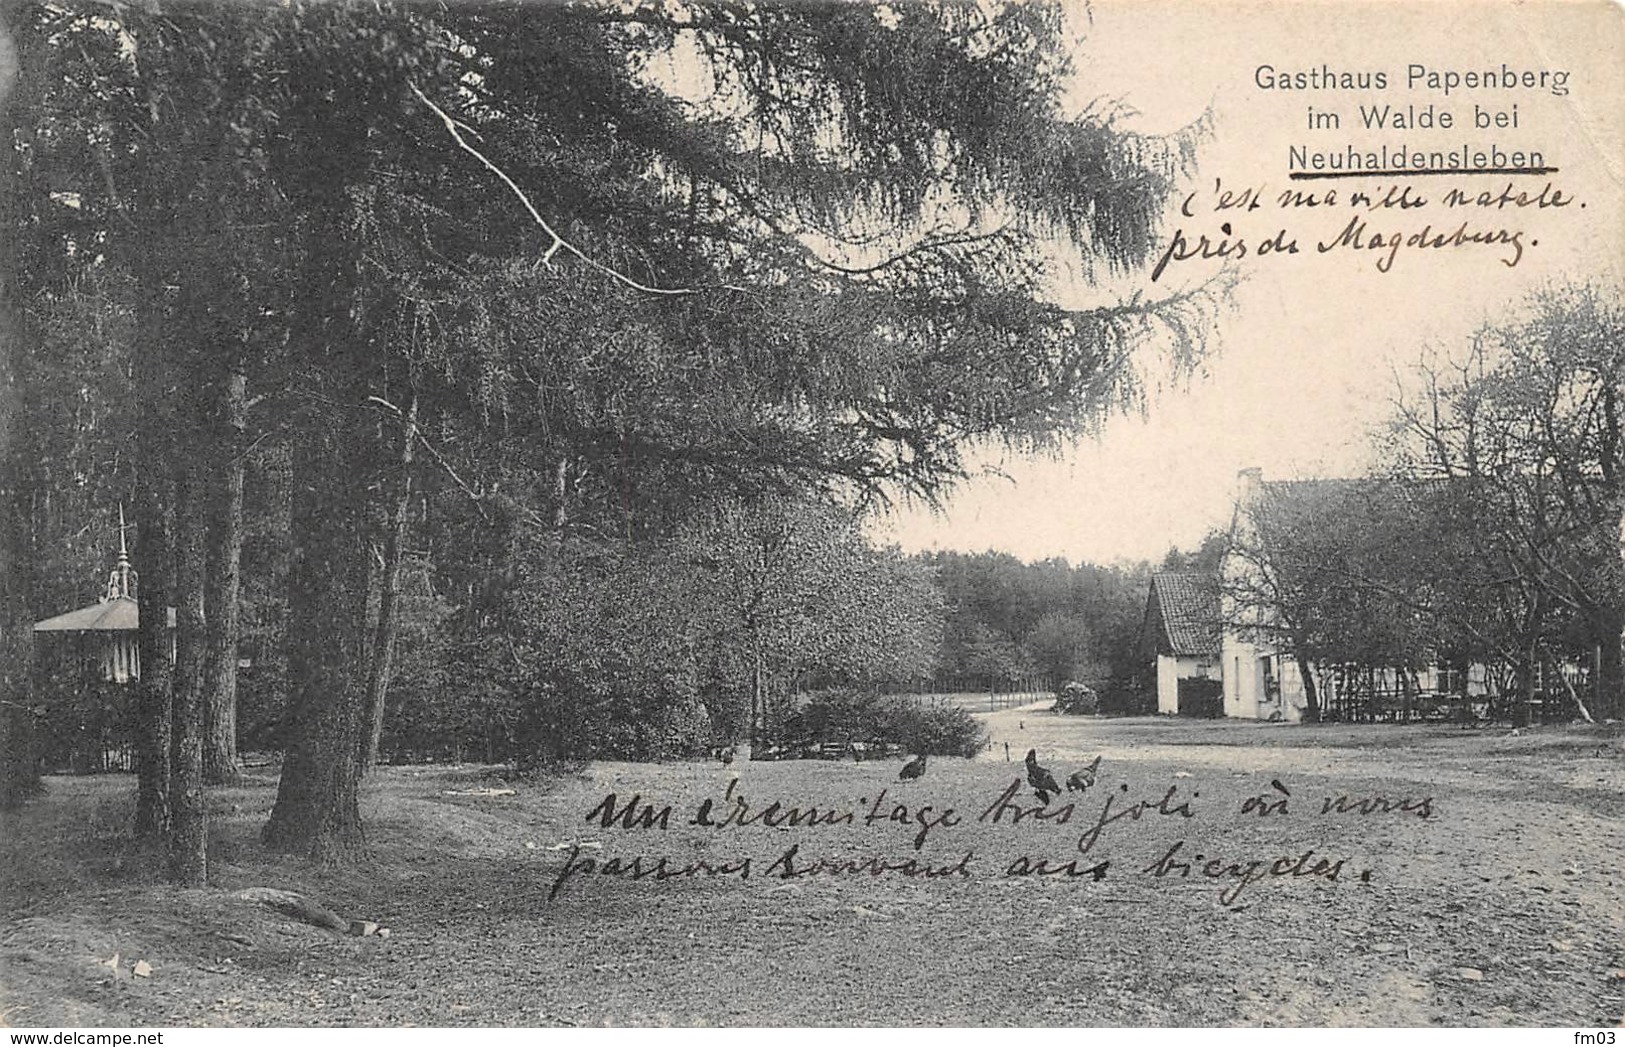 Gasthaus Papenberg
im Walde bei
Neuhaldensleben
c'est ma ville natale.
près de Magdeburg.
Un érémitage très joli où nous
passons souvent avec bicycles.
© www.delcampe.net
fm03